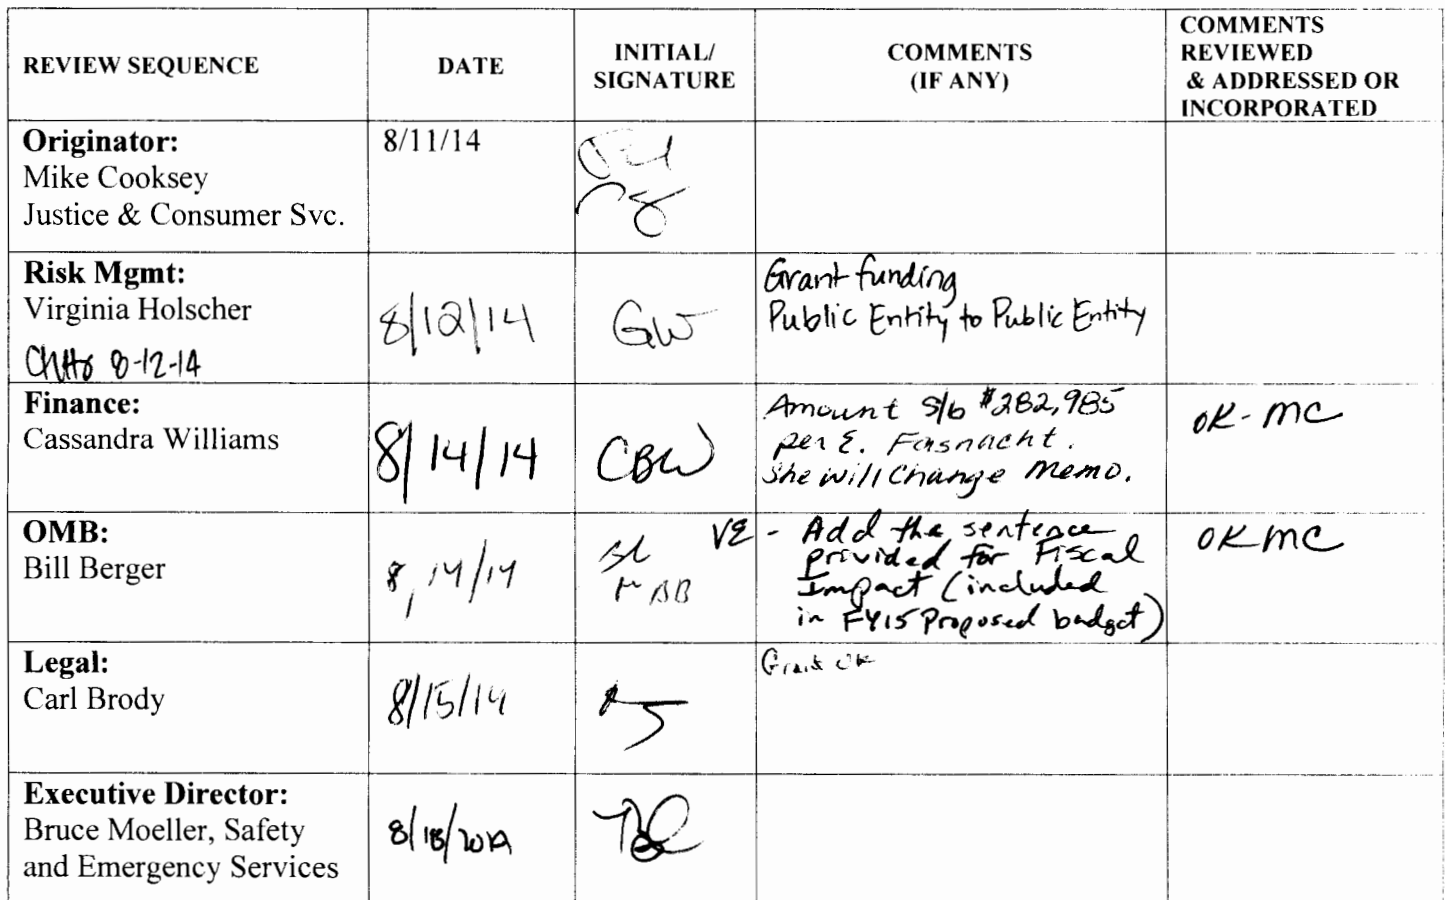 REVIEW SEQUENCE
DATE
INITIAL/
SIGNATURE
COMMENTS
(IF ANY)
COMMENTS
REVIEWED
& ADDRESSED OR
INCORPORATED
Originator:
Mike Cooksey
Justice & Consumer Svc.
8/11/14
Risk Mgmt:
Virginia Holscher
8-12-14
8/12/14
GW
Grant funding
Public Entity to Public Entity
Finance:
Cassandra Williams
8/14/14
CBW
Amount s/b $282,985
per E. Fasnacht.
She will Change Memo.
OK - MC
OMB:
Bill Berger
8/14/14
BB
VE - Add the sentence
provided for Fiscal
Impact (included
in FY15 Proposed budget)
OK MC
Legal:
Carl Brody
8/15/14
Grant OK
Executive Director:
Bruce Moeller, Safety
and Emergency Services
8/18/2014